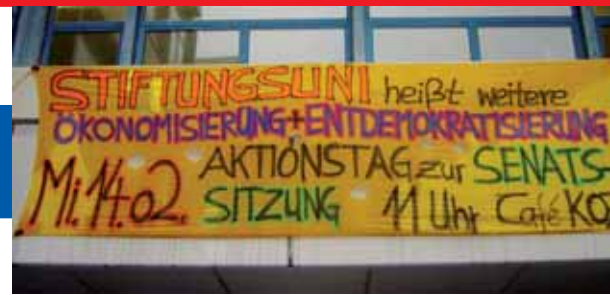 STIFTUNGSUNI heißt weitere
ÖKONOMISIERUNG+ENTDEMOKRATISIERUNG
Mi. 14.02. AKTIONSTAG zur SENATS-
SITZUNG 11 Uhr Café